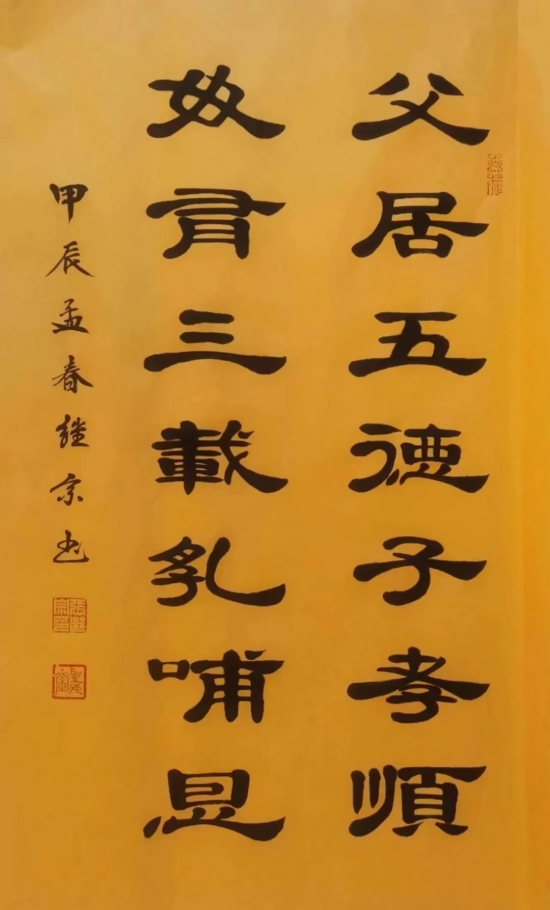 父居五德子孝順
母肩三載乳哺恩
甲辰孟春继宗书